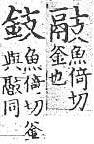 魚倚切
釜也
鈘
魚倚切釜
與同